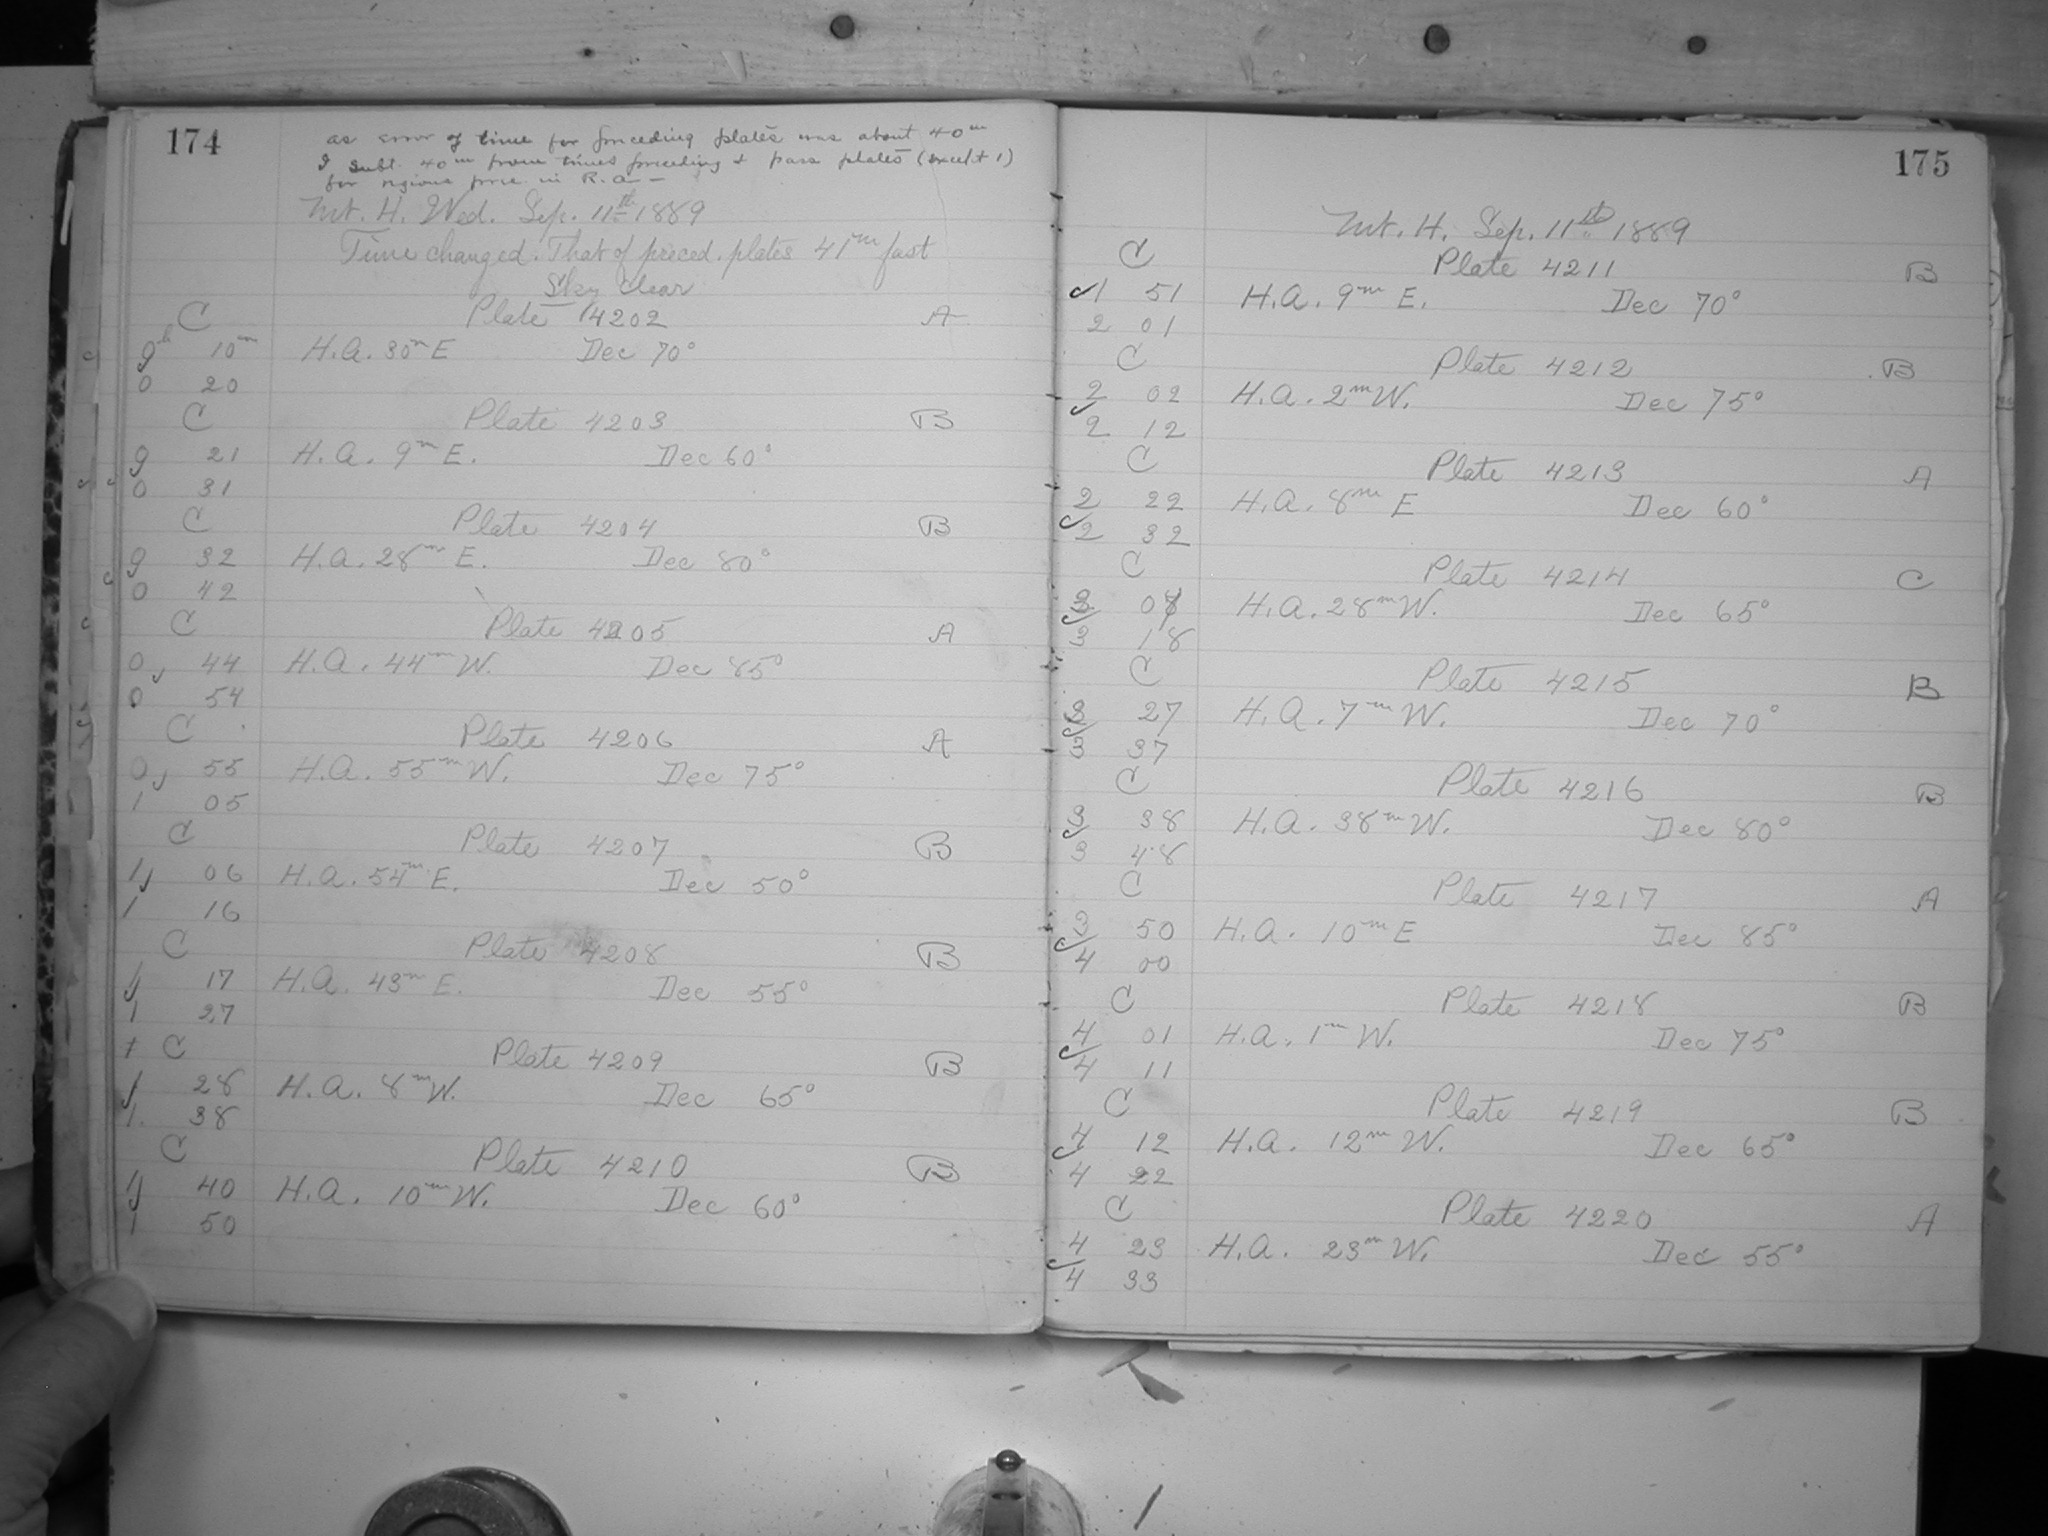 174
as error of time for preceding plates was about 40m
I subt. 40m from times preceding + pass plates (except 1)
for regions prec. in R.A. —
Mt. H. Wed. Sep. 11th 1889
Time changed. That of preced. plates 41m fast
Sky clear
C Plate 4202 A
9h 10m H.A. 30m E Dec 70°
0 20
C Plate 4203 B
9 21 H.A. 9m E. Dec 60°
0 31
C Plate 4204 B
9 32 H.A. 28m E. Dec 80°
0 42
C Plate 4205 A
0 44 H.A. 44m W. Dec 85°
0 54
C Plate 4206 A
0 55 H.A. 55m W. Dec 75°
1 05
C Plate 4207 B
1 06 H.A. 54m E. Dec 50°
1 16
C Plate 4208 B
1 17 H.A. 43m E. Dec 55°
1 27
+ C Plate 4209 B
1 28 H.A. 8m W. Dec 65°
1. 38
C Plate 4210 B
1 40 H.A. 10m W. Dec 60°
1 50
175
Mt. H. Sep. 11th 1889
C Plate 4211 B
✓1 51 H.A. 9m E. Dec 70°
2 01
C Plate 4212 B
2 02 H.A. 2m W. Dec 75°
✓2 12
C Plate 4213 A
2 22 H.A. 8m E Dec 60°
✓2 32
C Plate 4214 C
3 08 H.A. 28m W. Dec 65°
3 18
C Plate 4215 B
3 27 H.A. 7m W. Dec 70°
3 37
C Plate 4216 B
3 38 H.A. 38m W. Dec 80°
3 48
C Plate 4217 A
3 50 H.A. 10m E Dec 85°
✓4 00
C Plate 4218 B
4 01 H.A. 1m W. Dec 75°
✓4 11
C Plate 4219 B
4 12 H.A. 12m W. Dec 65°
4 22
C Plate 4220 A
4 23 H.A. 23m W. Dec 55°
✓4 33